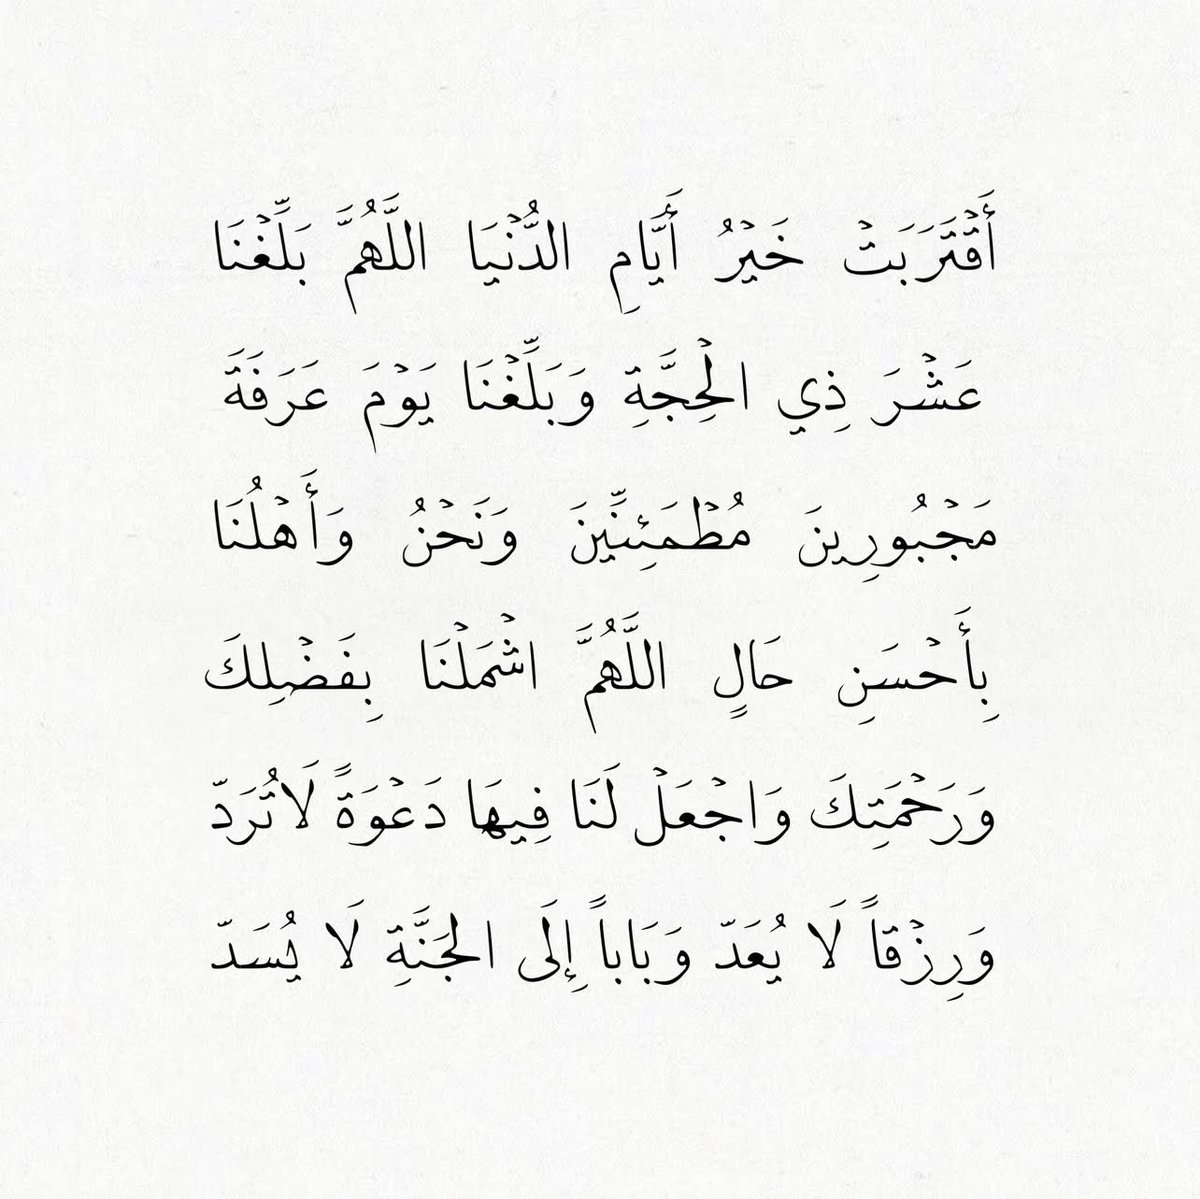 أَقْتَرَبَتْ خَيْرُ أَيَّامِ الدُّنْيَا اللَّهُمَّ بَلِّغْنَا
عَشْرَ ذِي الْحِجَّةِ وَبَلِّغْنَا يَوْمَ عَرَفَةَ
مَجْبُورِينَ مُطْمَئِنِّينَ وَنَحْنُ وَأَهْلُنَا
بِأَحْسَنِ حَالٍ اللَّهُمَّ اشْمَلْنَا بِفَضْلِكَ
وَرَحْمَتِكَ وَاجْعَلْ لَنَا فِيهَا دَعْوَةً لَاتُرَدّ
وَرِزْقاً لَا يُعَدّ وَبَاباً إِلَى الجَنَّةِ لَا يُسَدّ